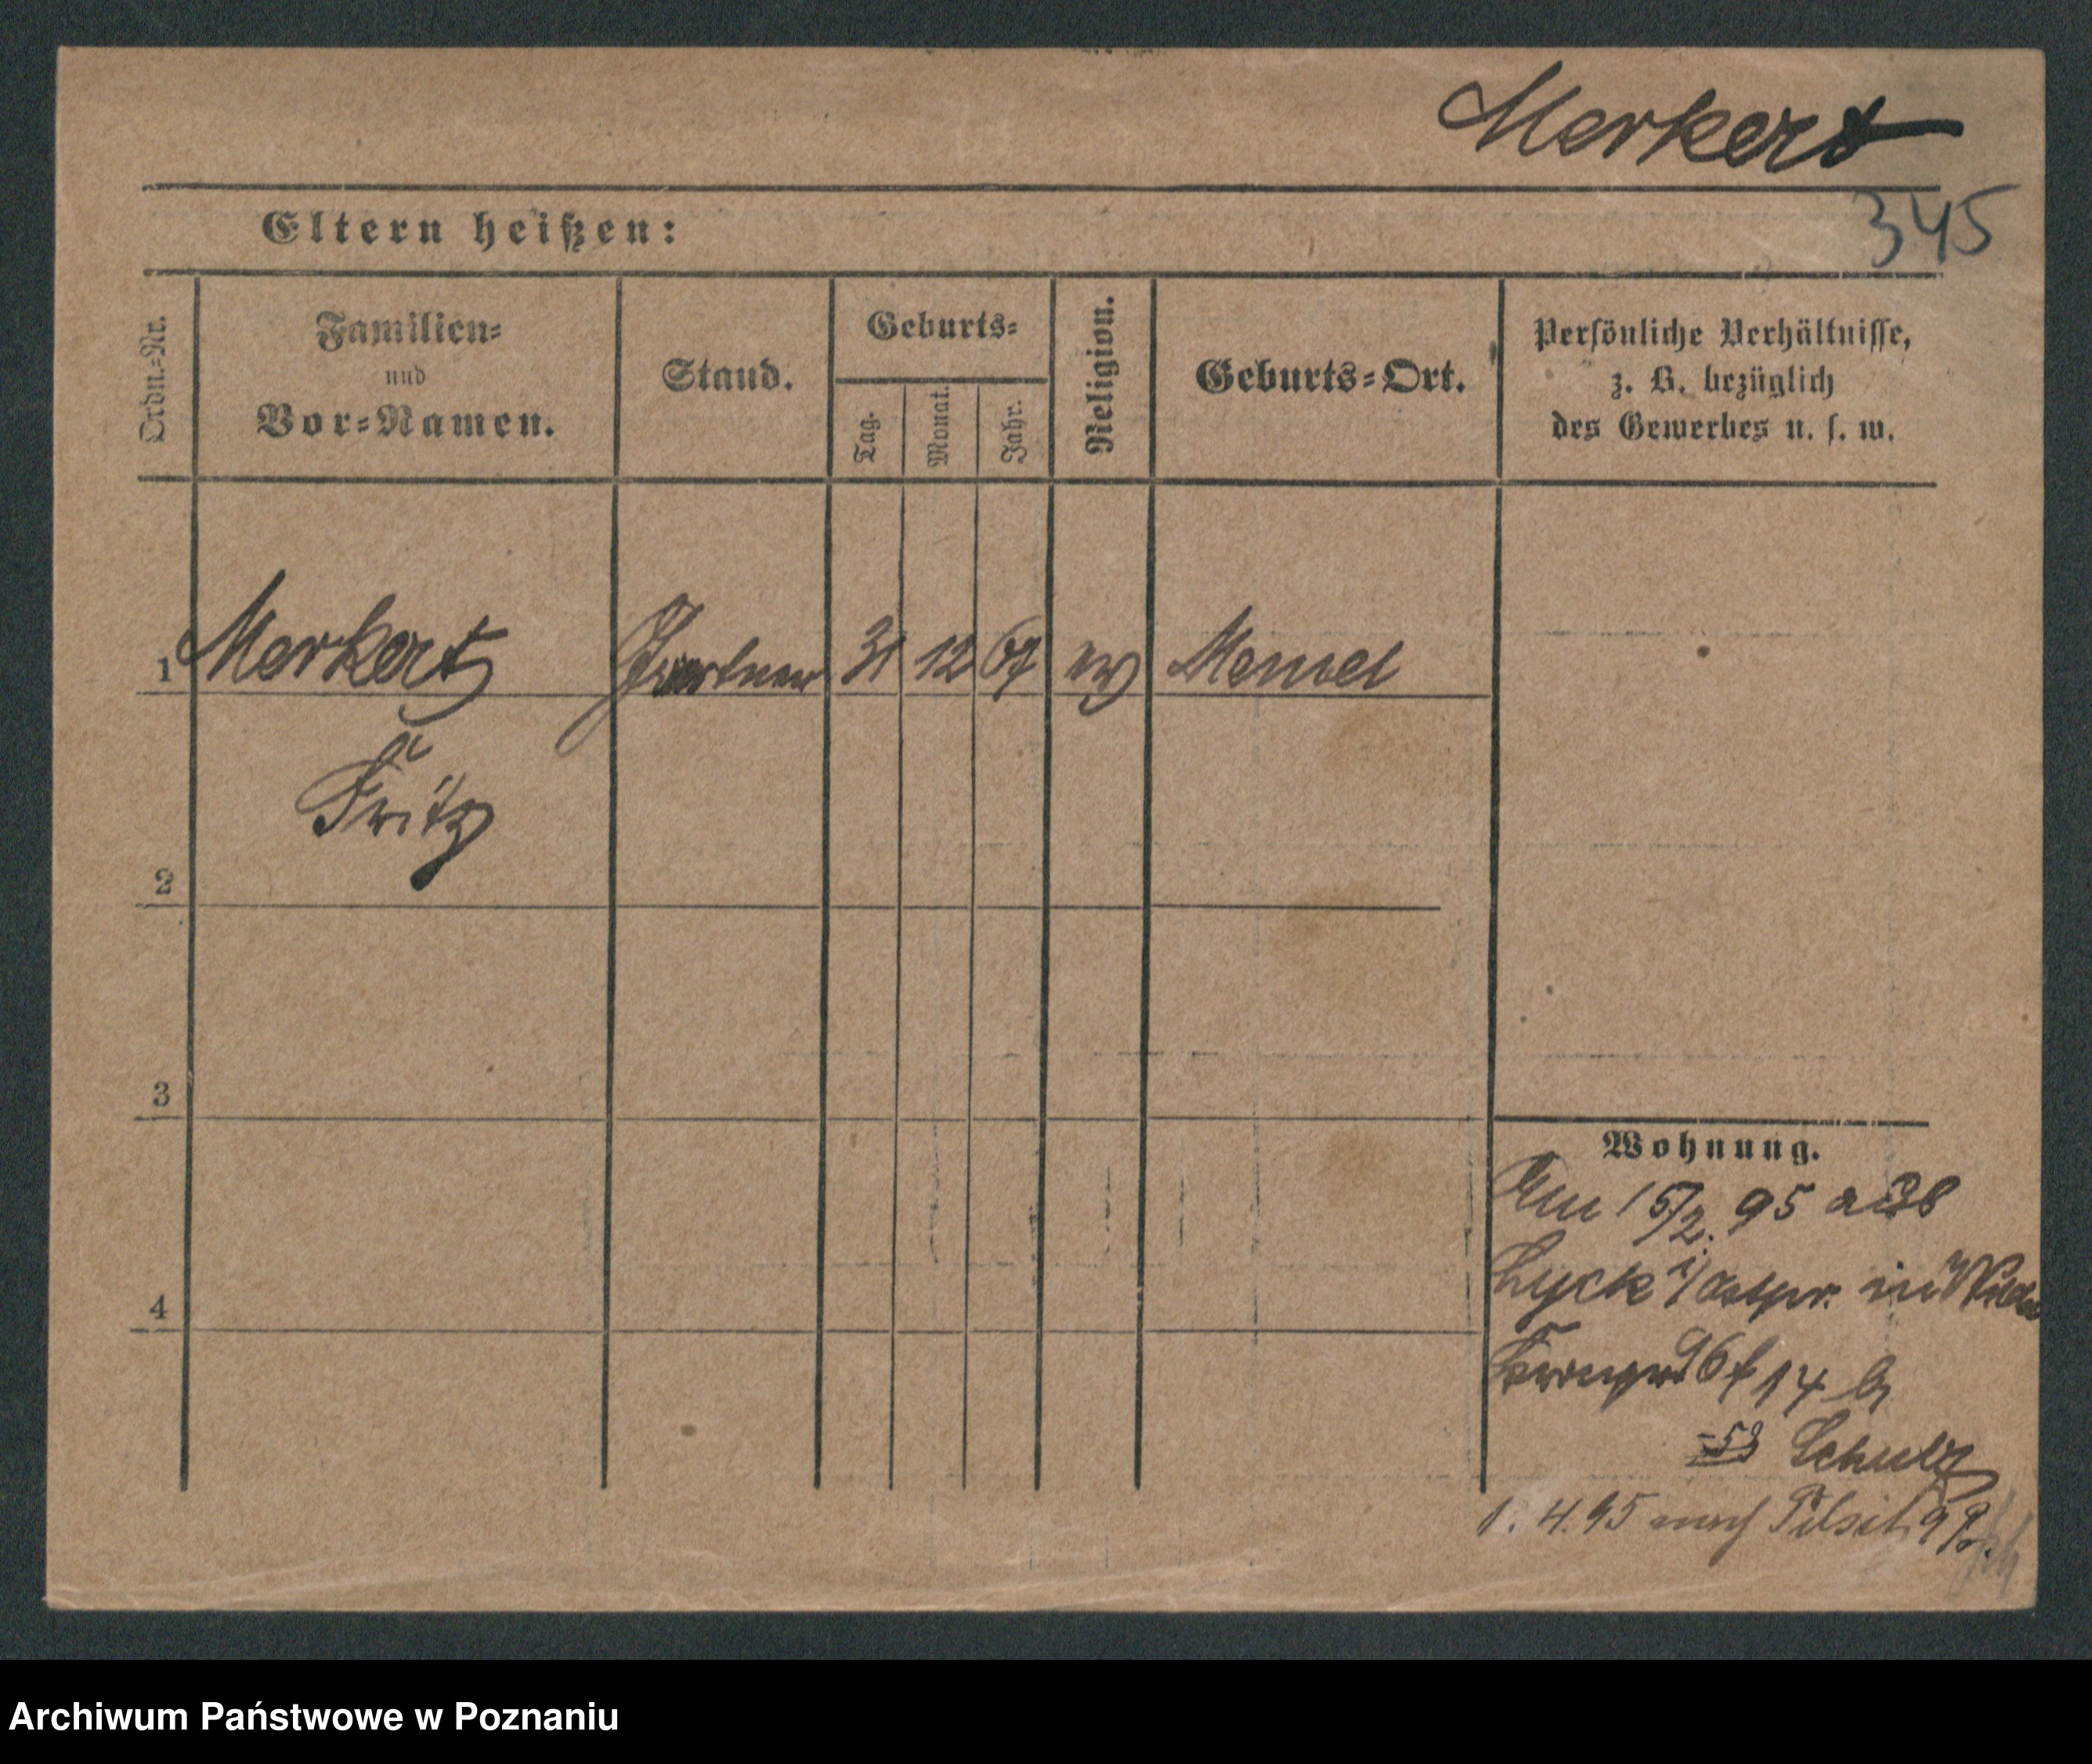 Merkert
345
Eltern heißen:
Ordn.-Nr.
Familien-
und
Vor-Namen.
Stand.
Geburts-
Tag.
Monat.
Jahr.
Religion.
Geburts-Ort.
Persönliche Verhältnisse,
z. B. bezüglich
des Gewerbes u. s. w.
1 Merkert Gärtner 31 12 67 ev Memel
Fritz
2
3
4
Wohnung.
Am 15/2. 95 aus
Lyck i/ Ostpr. in Wilda
14
Schulz
1. 4. 95 nach Tilsit
Archiwum Państwowe w Poznaniu